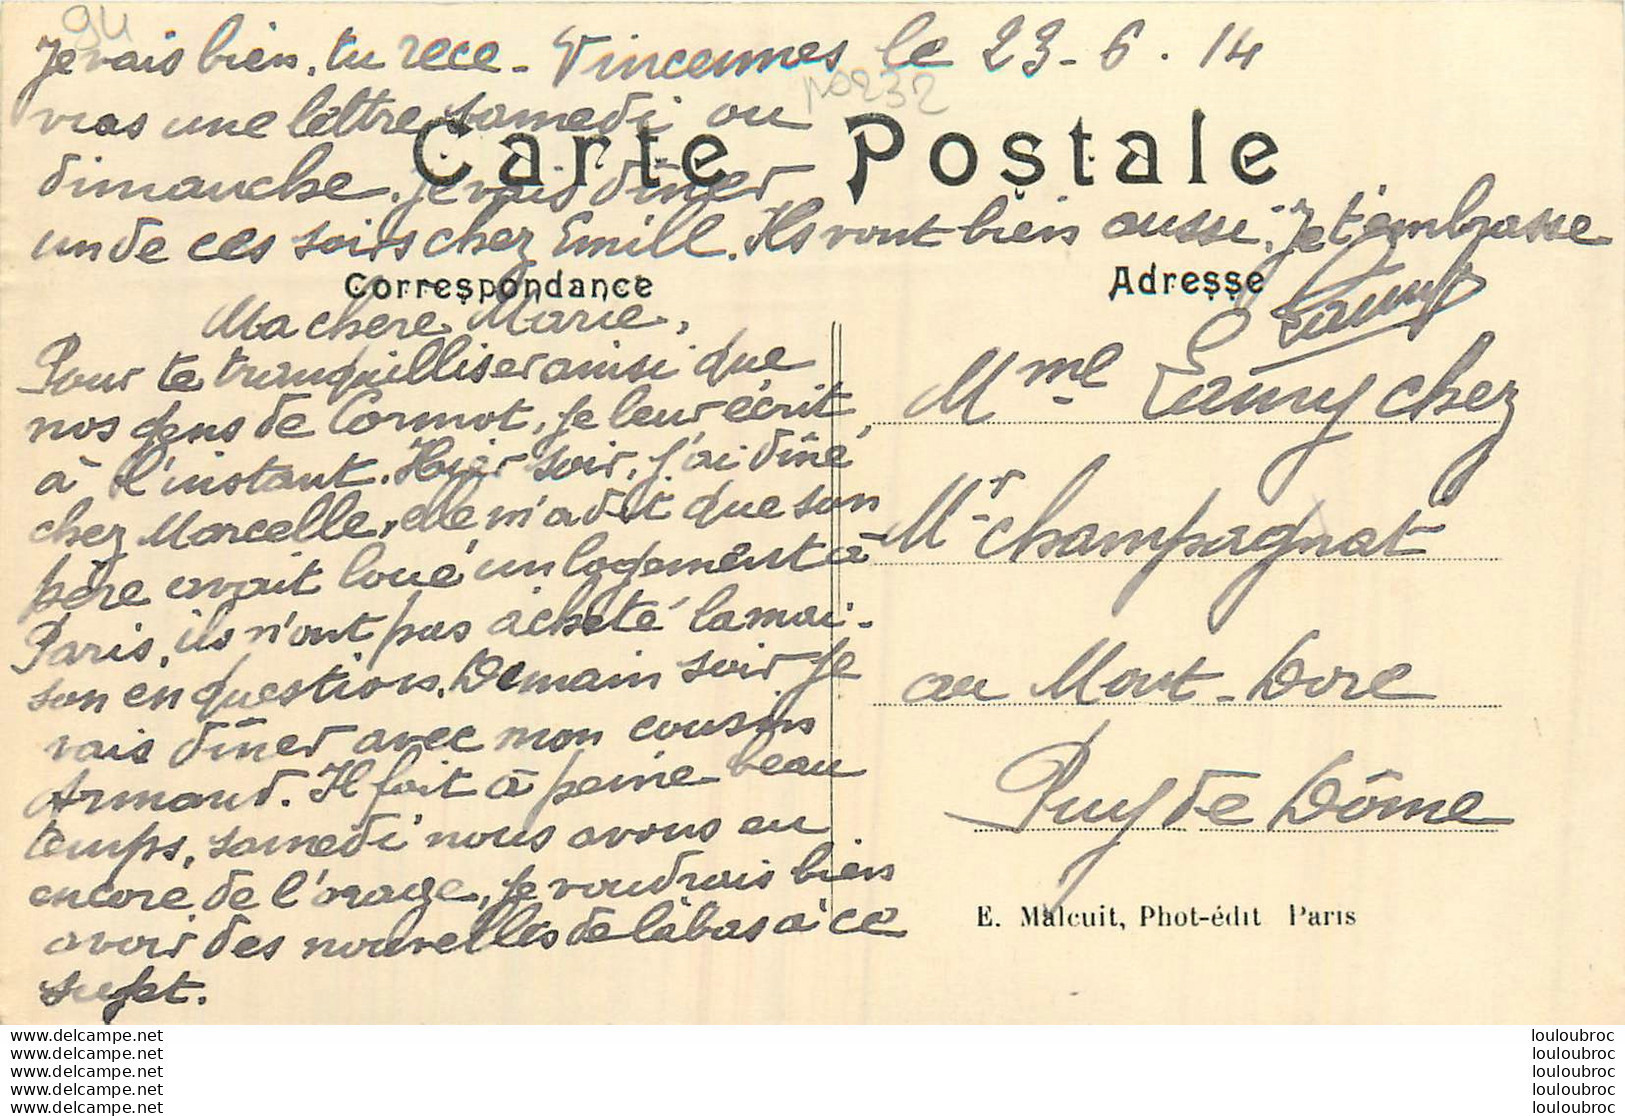 94
Je vais bien. tu rece- Vincennes le 23-6.14
p0232
vras une lettre samedi ou
Carte Postale
dimanche. je vais dîner
un de ces soirs chez Emill. Ils vont bien aussi. Je t'embrasse
Correspondance
Adresse
Ma chère Marie,
Pour te tranquilliser ainsi que
nos gens de Cormot, je leur écrit
à l'instant. Hier soir, j'ai dîné
chez Marcelle, elle m'a dit que son
père avait loué un logement à
Paris, ils n'ont pas acheté la mai-
son en question. Demain soir je
vais dîner avec mon cousins
Armand. Il fait à peine beau
temps, samedi nous avons eu
encore de l'orage, je voudrais bien
avoir des nouvelles de làbas à ce
sujet.
Mme Lamy chez
Mr Champagnat
au Mont-Dore
Puy de Dôme
E. Malcuit, Phot-édit Paris
www.delcampe.net
www.delcampe.net
www.delcampe.net
www.delcampe.net
www.delcampe.net
louloubroc
louloubroc
louloubroc
louloubroc
louloubroc